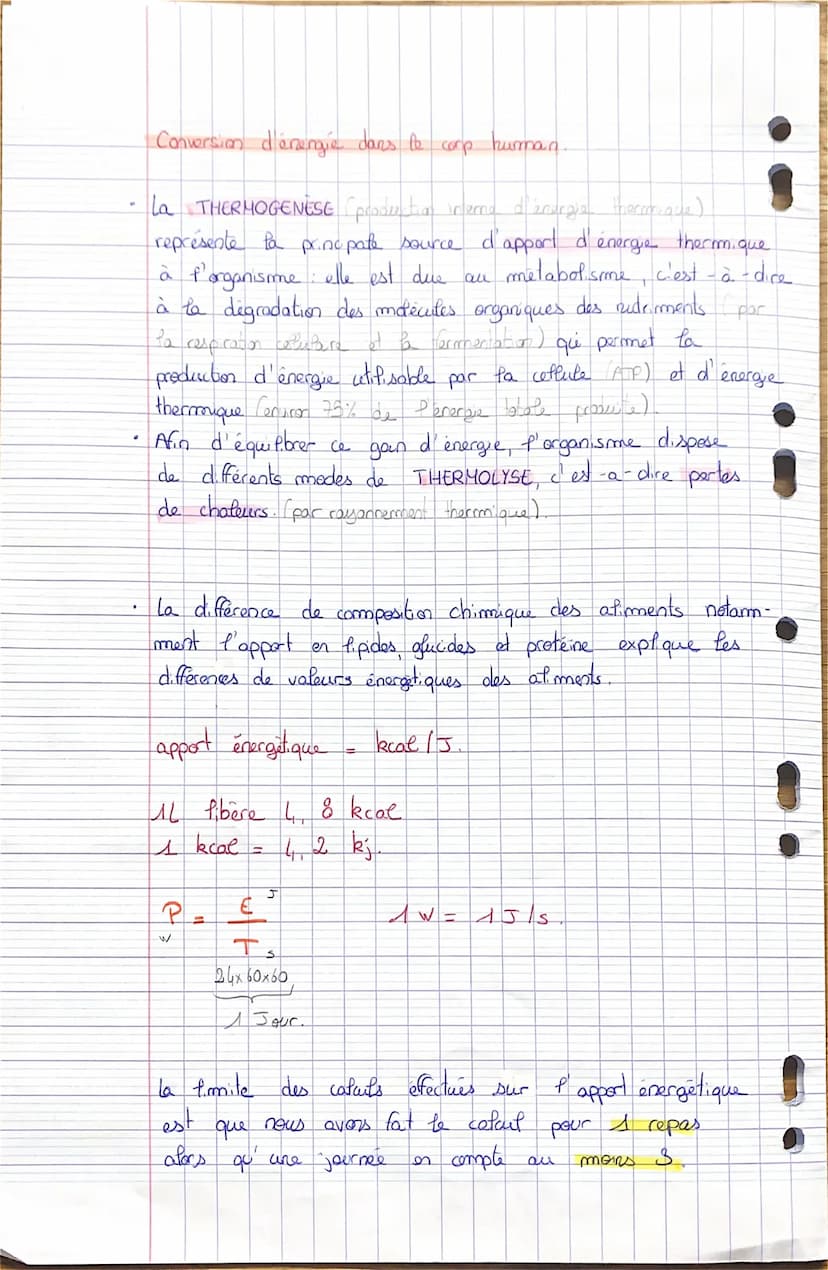 Conversion d'énergie dans le corp human.
• La THERMOGENÈSE (production interne d'énergie thermique)
représente la principale source d'apport d'énergie thermique
à l'organisme : elle est due au métabolisme, c'est-à-dire
à la dégradation des molécules organiques des nutriments (par
la respiration cellulaire et la fermentation) qui permet la
production d'énergie utilisable par la cellule (ATP) et d'énergie
thermique (environ 75% de l'énergie totale produite).
• Afin d'équilibrer ce gain d'énergie, l'organisme dispose
de différents modes de THERMOLYSE, c'est-a-dire pertes
de chaleurs. (par rayonnement thermique).
• La différence de composition chimique des aliments notam-
ment l'apport en lipides, glucides et protéine explique les
différences de valeurs énergétiques des aliments.
apport énergétique = kcal/J.
1L libère 4,8 kcal
1 kcal = 4,2 kj.
P = E J 1 w = 1 J/s.
w T s
24x60x60
1 Jour.
La limite des calculs éffectués sur l'apport énergétique
est que nous avons fait le calcul pour 1 repas
alors qu'une journée en compte au moins 3.